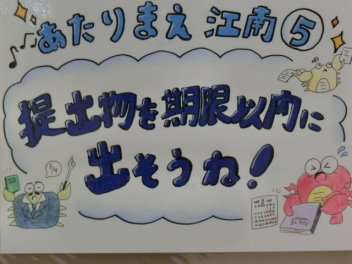 あたりまえ江南⑤
提出物を期限以内に
出そうね！